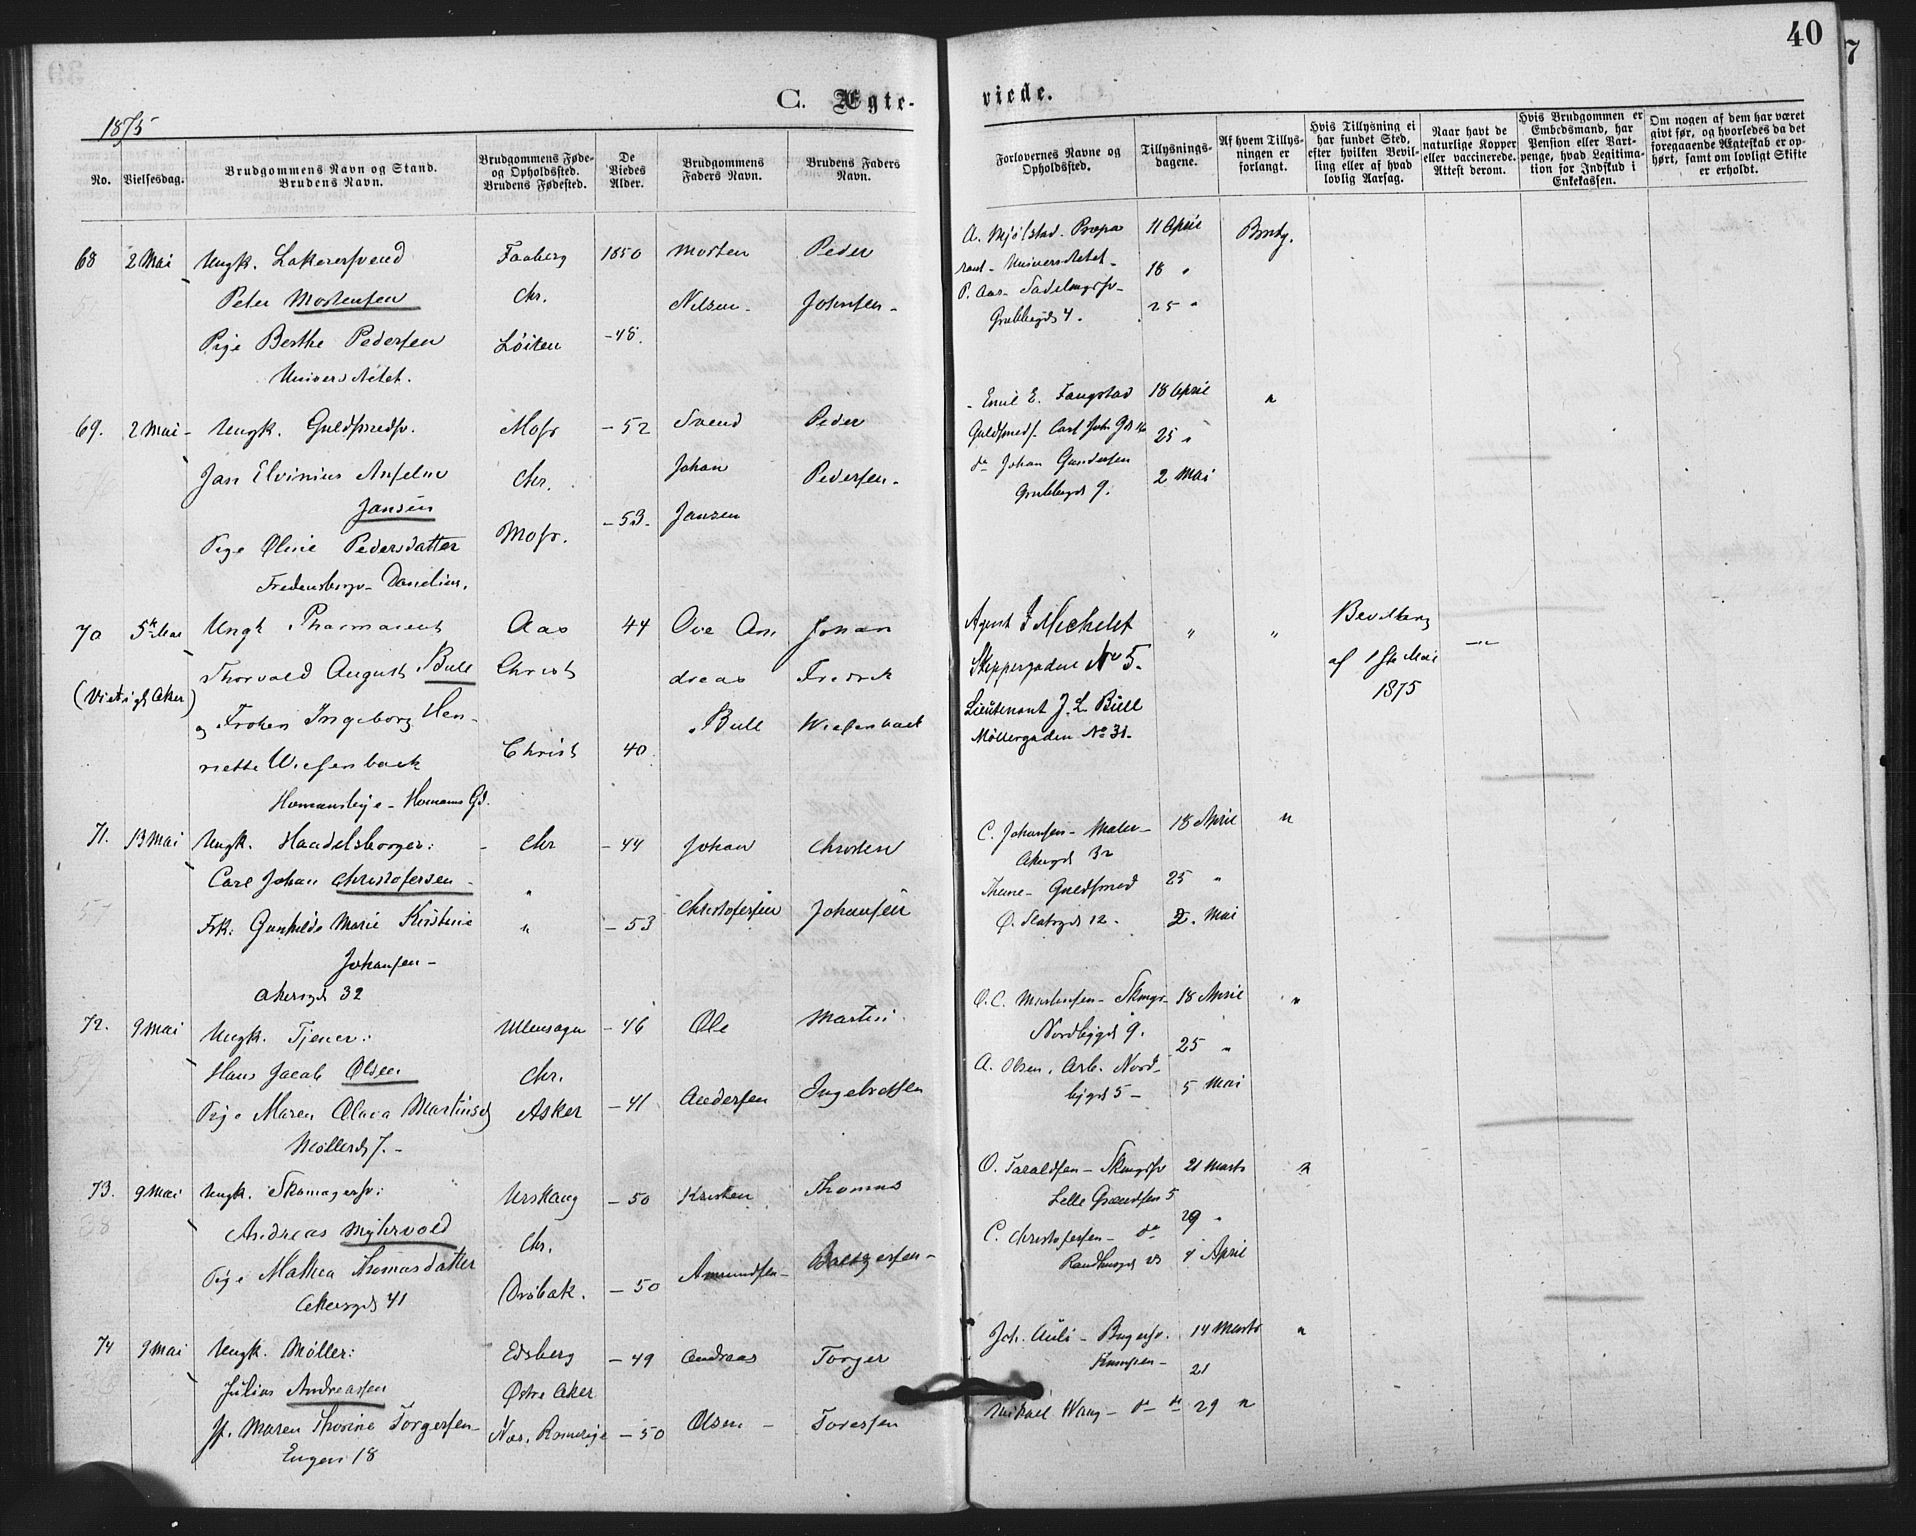 40
7
C. Ægte-
viede.
1875
No.
Vielsesdag.
Brudgommens Navn og Stand.
Brudens Navn.
Brudgommens Føde-
og Opholdssted.
Brudens Fødested.
De
Viedes
Alder.
Brudgommens
Faders Navn.
Brudens Faders
Navn.
Forlovernes Navne og
Opholdssted.
Tillysnings-
dagene.
Af hvem Tillys-
ningen er
forlangt.
Hvis Tillysning ei
har fundet Sted,
efter hvilken Bevil-
ling eller af hvad
lovlig Aarsag.
Naar havt de
naturlige Kopper
eller vaccinerede.
Attest derom.
Hvis Brudgommen er
Embedsmand, har
Pension eller Vart-
penge, hvad Legitima-
tion for Indskud i
Enkekassen.
Om nogen af dem har været
givt før, og hvorledes da det
foregaaende Ægteskab er op-
hørt, samt om lovligt Skifte
er erholdt.
68 2 Mai Ungk. Lakerersvend Faaberg 1850 Morten Peder A. Mjølstad. Præpa 11 April Brudg.
rant - Universitetet - 18 "
Peter Mortensen Chr. Nilsen - Johnsen - P. Aas - Sadelmgsv -
Grubbegd 4. 25 "
Pige Berthe Pedersen Løiten - 48.
Universitetet.
69. 2 Mai - Ungk. Guldsmedsv. Moss - 52 Svend Peder - Emil E. Fangstad 18 April "
Guldsmeds. Carl Joh. Gd 25 "
Jan Elvinius Anselm Chr. Johan Pedersen - do Johan Gundersen 2 Mai
Jansen Jansen Grubbegd 9.
Pige Oline Pedersdatter Moss. - 53.
Fredensborgv - Danelius.
70 5te Mai Ungk Pharmaceut Aas 44 Ove An Johan Agent J Michelet " " Bevilling
(Viet i V. Aker) Thorvald August Bull Christ dreas Fredrik Skippergaden No 5. af 1ste Mai
1875
og Frøken Ingeborg Hen- Bull Wiesenback Lieutenant J. L. Bull
Møllergaden No 31.
riette Wiesenback Christ 40
Homansbye - Homans Gd.
71. 13 Mai Ungk. Handelsborger: Chr - 44 Johan Christen C. Johansen - Maler - 18 April "
Akersgd 32
Carl Johan Christofersen - " Christofersen Johansen Theine - Guldsmed 25 "
Frk: Gunhilde Marie Kirstine " - 53 Ø. Slotsgd 12. 2. Mai
Johansen -
Akersgd 32
72. 9 Mai Ungk. Tjener: Ullensager - 46 Ole Martin O. C. Martinsen - Skmgr - 18 April "
Nordbygd 9. 25 "
Hans Jacob Olsen Chr. Andersen Ingebretsen A. Olsen, Arb. Nord-
bygd 5 - 5 Mai
Pige Maren Olava Martinsd Asker - 41
Møllergd 7. -
73. 9 Mai Ungk. Skomagersv: Urskaug - 50 Kristen Thomas O. Taraldsen - Skmgsv 21 Marts "
Lille Grændsen 5
Andreas Myhrvold Chr. Amundsen - C. Christofersen - do 29 "
Pige Mathea Thomasdatter Drøbak. - 50 4 April
Akersgd 41
74 9 Mai Ungk. Møller: Edsberg - 49 Andreas Torger Joh. Auli - Bagersv. 14 Marts "
Kampen - 21
Julius Andreassen Østre Aker Olsen - Toresen Mikael Wang - do do 29 "
Pg. Maren Thorine Torgersen - Nes, Romerige - 50
Engen 18